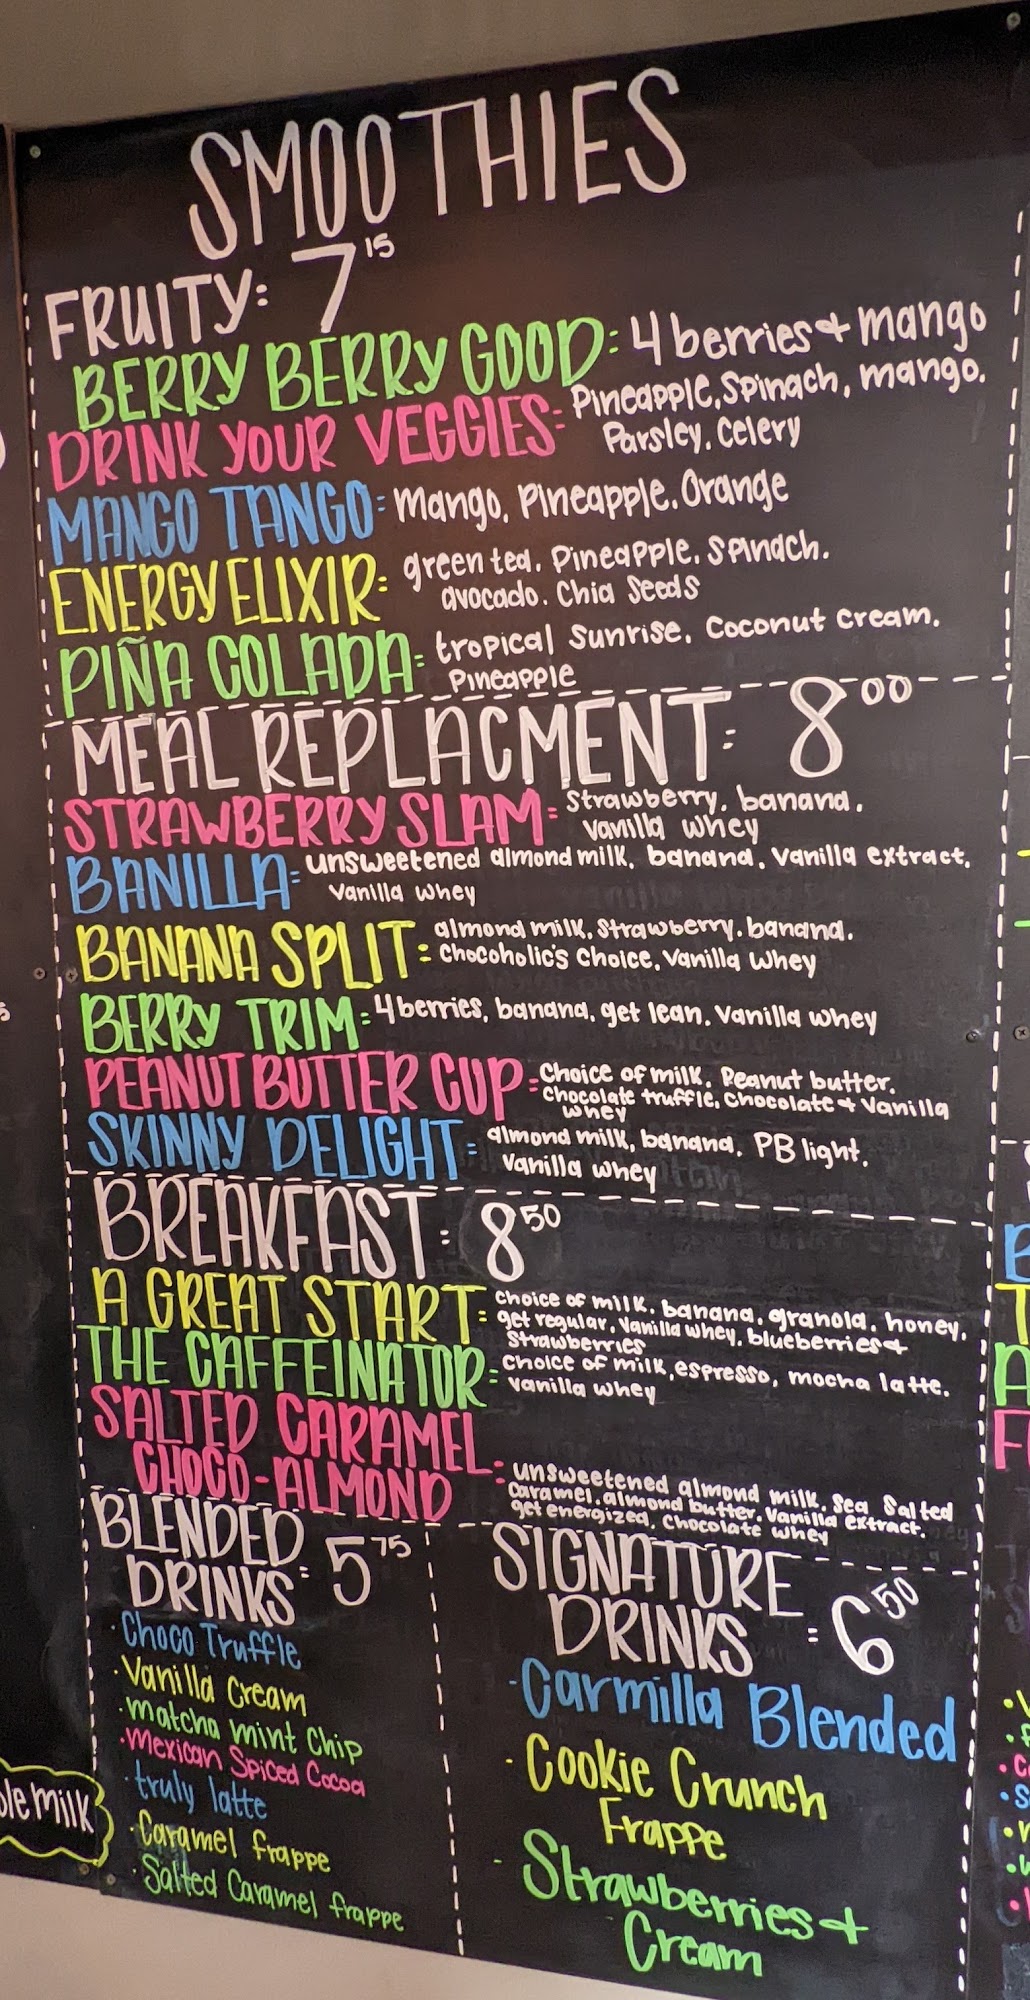 SMOOTHIES
FRUITY: 7 15
BERRY BERRY GOOD: 4 berries + mango
DRINK YOUR VEGGIES: Pineapple, Spinach, mango,
Parsley, Celery
MANGO TANGO: mango, Pineapple, Orange
ENERGY ELIXIR: green tea, Pineapple, Spinach,
avocado, Chia Seeds
PIÑA COLADA: tropical Sunrise, Coconut Cream,
Pineapple
MEAL REPLACMENT: 8 00
STRAWBERRY SLAM: Strawberry, banana,
Vanilla Whey
BANILLA: unsweetened almond milk, banana, Vanilla extract,
Vanilla Whey
BANANA SPLIT: almond milk, Strawberry, banana,
Chocoholic's Choice, Vanilla Whey
BERRY TRIM: 4 berries, banana, get lean, Vanilla whey
PEANUT BUTTER CUP: Choice of milk, Peanut butter,
Chocolate truffle, Chocolate + Vanilla
Whey
SKINNY DELIGHT: almond milk, banana, PB light,
Vanilla Whey
BREAKFAST: 8 50
A GREAT START: Choice of milk, banana, granola, honey,
get regular, Vanilla whey, blueberries +
Strawberries
THE CAFFEINATOR: choice of milk, espresso, mocha latte,
Vanilla whey
SALTED CARAMEL
CHOCO-ALMOND: unsweetened almond milk, Sea Salted
Caramel, almond butter, Vanilla extract,
get energized, Chocolate whey
BLENDED
DRINKS: 5 75
· Choco Truffle
· Vanilla Cream
· Matcha mint Chip
· Mexican Spiced Cocoa
· truly latte
· Caramel frappe
· Salted Caramel frappe
SIGNATURE
DRINKS: 6 50
- Carmilla Blended
· Cookie Crunch
Frappe
- Strawberries +
Cream
milk